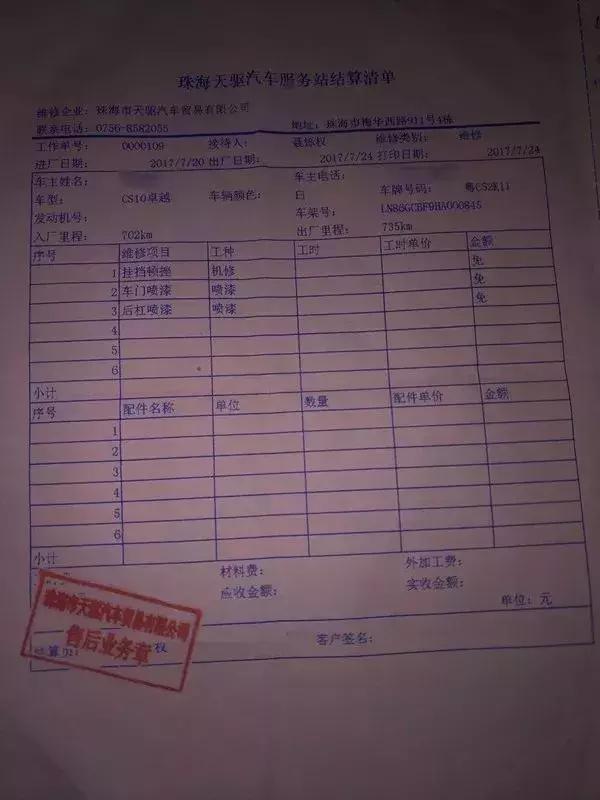 珠海天驱汽车服务站结算清单
维修企业: 珠海市天驱汽车贸易有限公司
联系电话: 0756-8582055 地址: 珠海市梅华西路911号4栋
工作单号: 0000109 接待人: 权 维修类别: 维修
进厂日期: 2017/7/20 出厂日期: 2017/7/24 打印日期: 2017/7/24
车主姓名: 车主电话:
车型: CS10卓越 车辆颜色: 白 车牌号码:
发动机号: 车架号: LN86GCBF9HA000845
入厂里程: 702km 出厂里程: 735km
序号 维修项目 工种 工时 工时单价 金额
1 挂挡顿挫 机修 免
2 车门喷漆 喷漆 免
3 后杠喷漆 喷漆 免
4
5
6
小计
序号 配件名称 单位 数量 配件单价 金额
1
2
3
4
5
6
小计
材料费: 外加工费:
应收金额: 实收金额:
单位: 元
珠海市天驱汽车贸易有限公司
售后业务章
结算 权 客户签名: